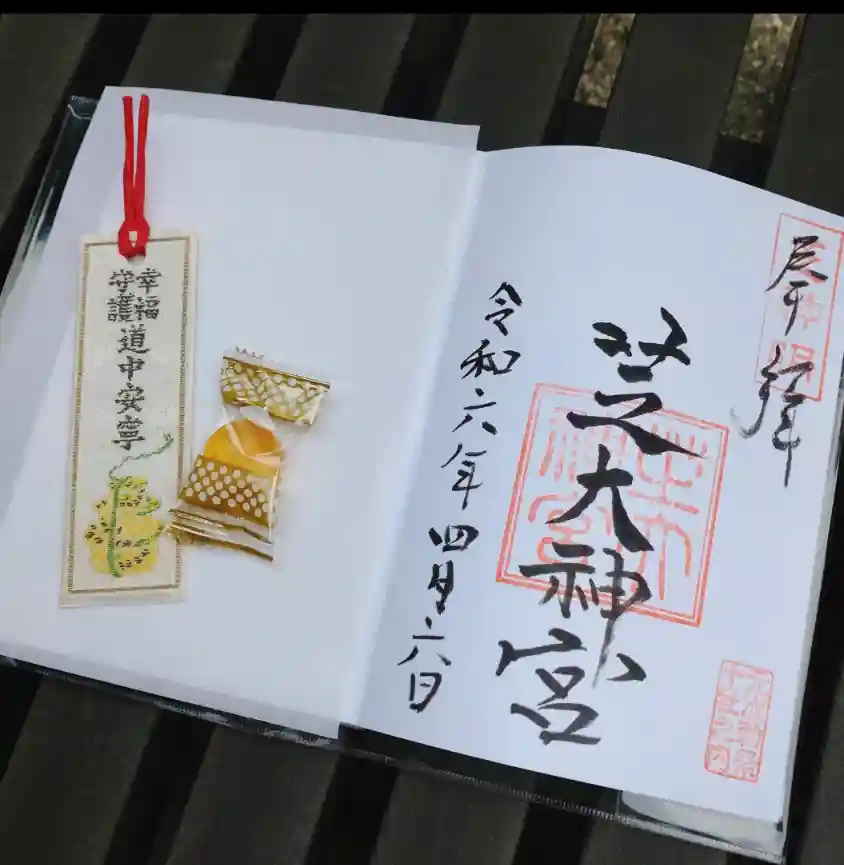 奉拝
芝大神宮
令和六年四月六日
幸福
守護
道中安寧